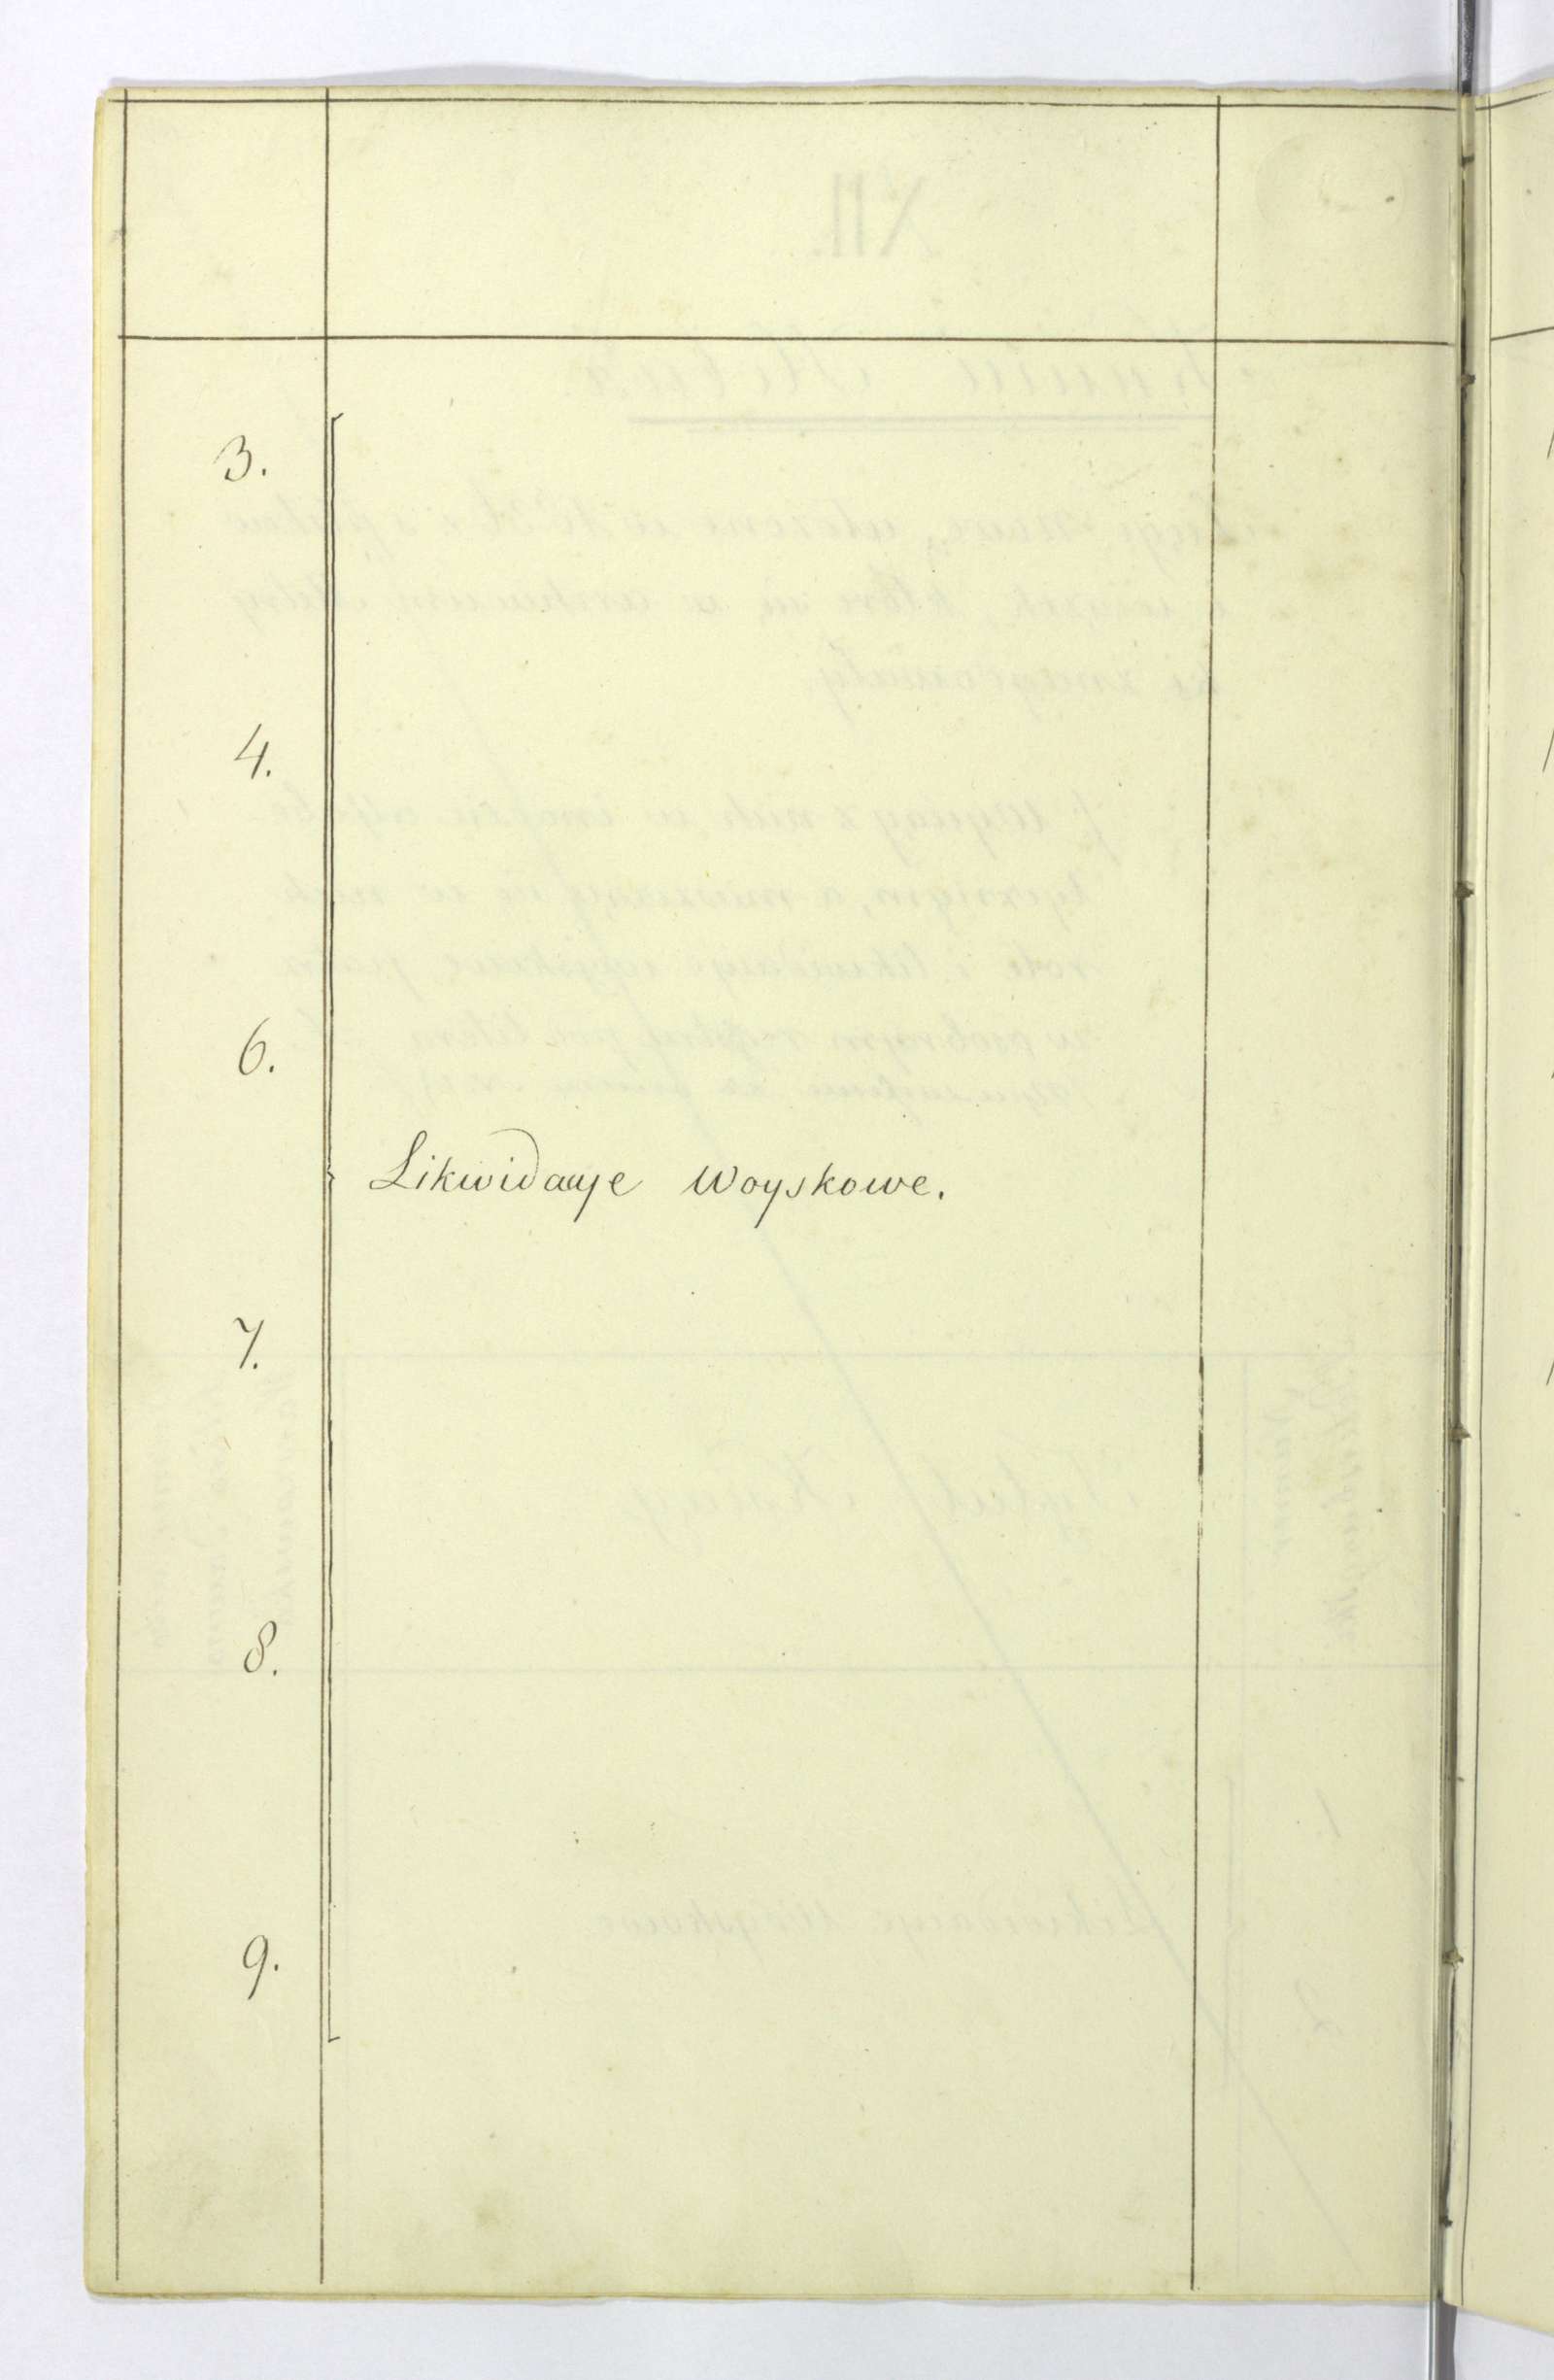 3.
4.
6.
Likwidacye Woyskowe.
7.
8.
9.